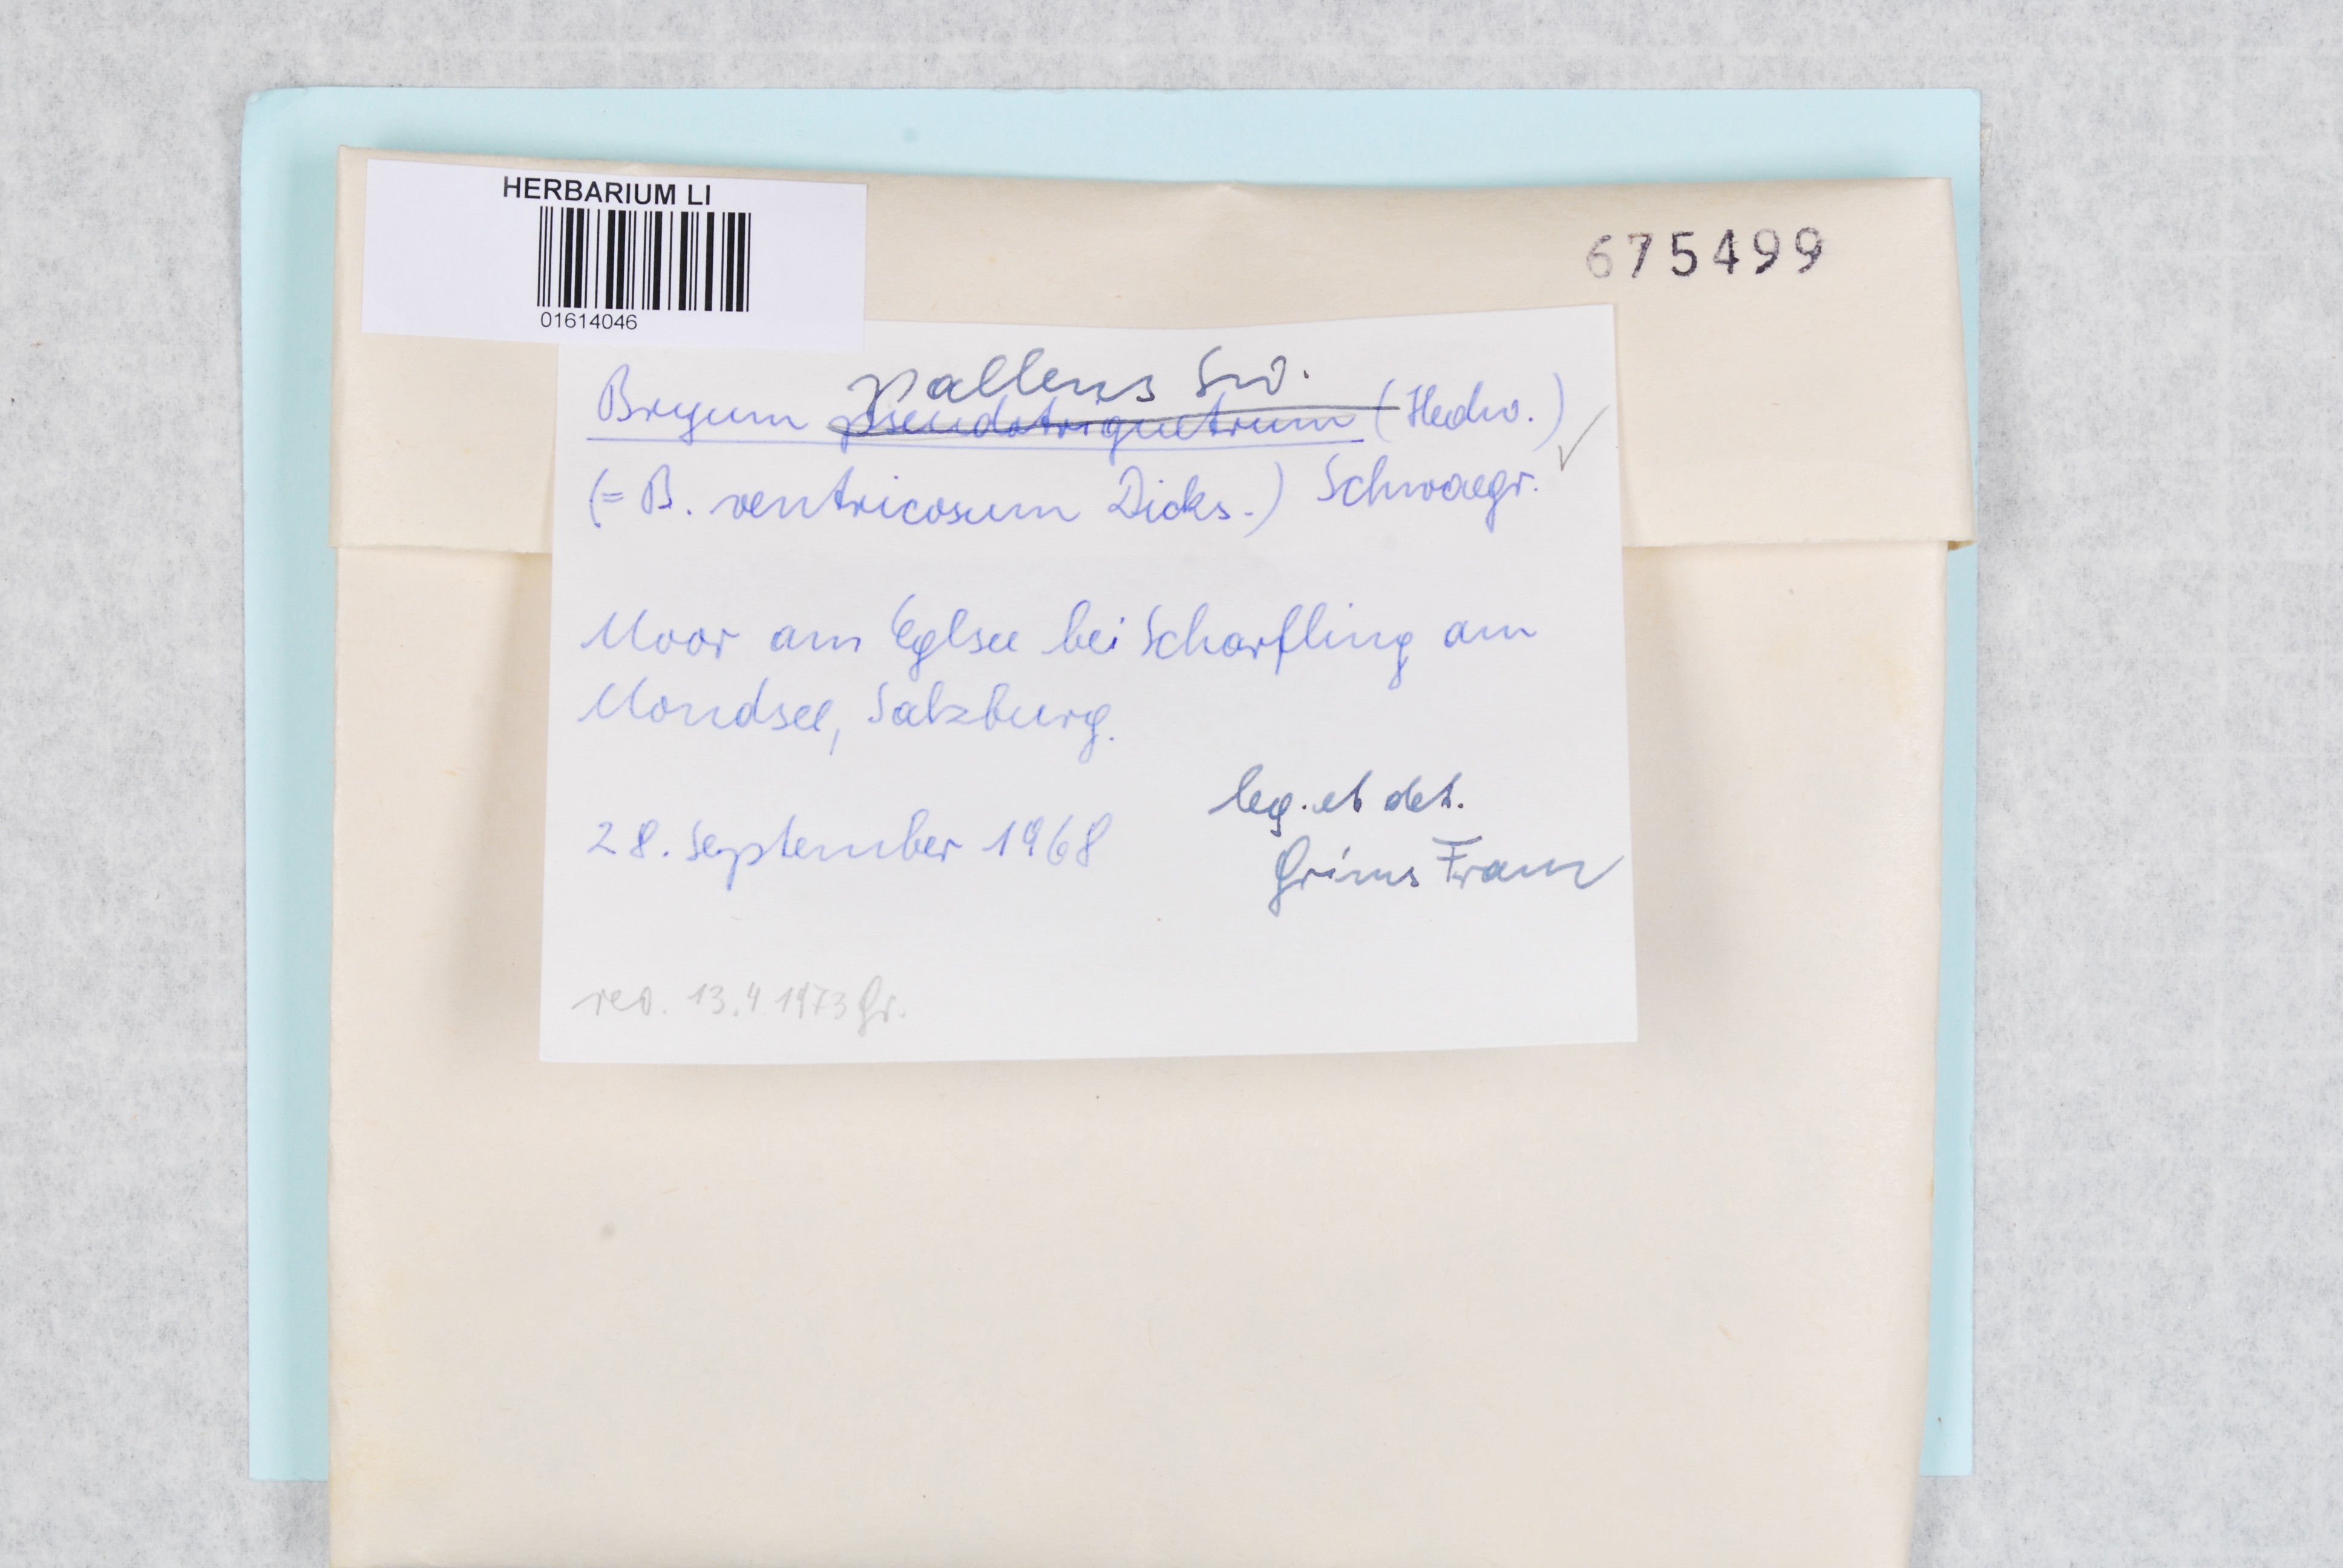 HERBARIUM LI
01614046
675499
pallens Sw.
Bryum pseudotriquetrum (Hedw.)
(= B. ventricosum Dicks.) Schwaegr. ✓
Moor am Eglsee bei Scharfling am
Mondsee, Salzburg.
28. September 1968
leg. et det.
Grims Franz
rev. 13.4.1973 Gr.